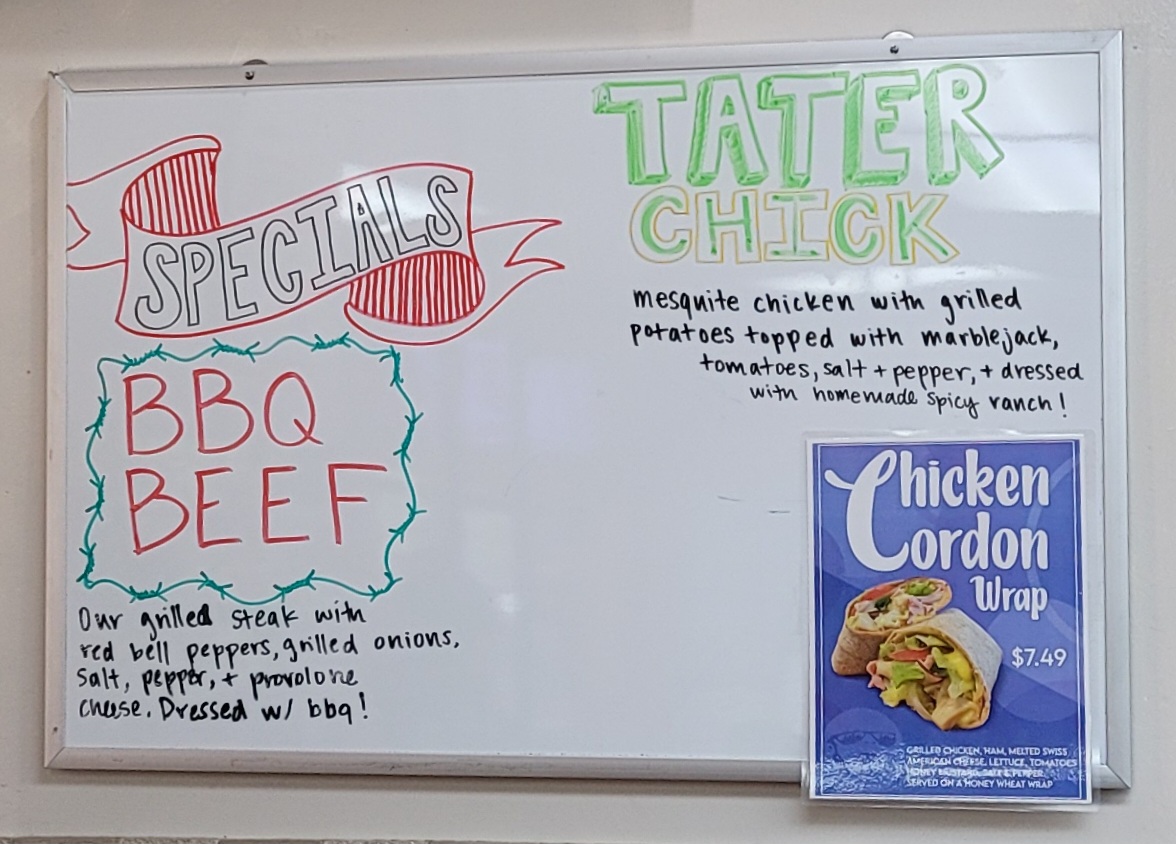 SPECIALS
BBQ
BEEF
Our grilled steak with
red bell peppers, grilled onions,
Salt, pepper, + provolone
cheese. Dressed w/ bbq!
TATER
CHICK
mesquite chicken with grilled
potatoes topped with marblejack,
tomatoes, salt + pepper, + dressed
with homemade spicy ranch!
Chicken
Cordon
Wrap
$7.49
GRILLED CHICKEN, HAM, MELTED SWISS
AMERICAN CHEESE, LETTUCE, TOMATOES
HONEY MUSTARD, SALT & PEPPER
SERVED ON A HONEY WHEAT WRAP